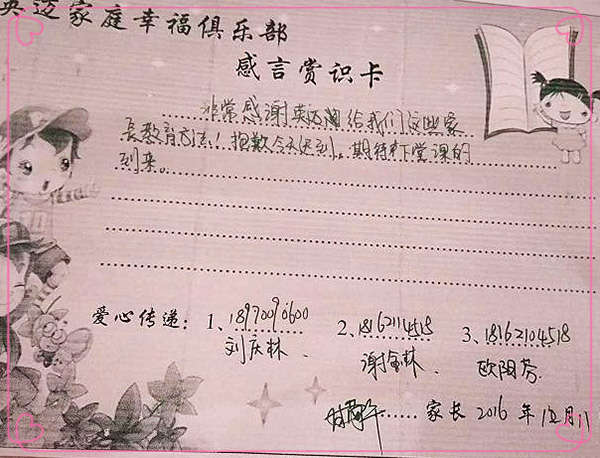 英迈家庭幸福俱乐部
感言赏识卡
非常感谢英迈阁给我们这些家
长教育方法！抱歉今天迟到。期待下堂课的
到来。
爱心传递：1、18970090600 2、18162114518 3、18162104518
刘庆林 谢金林 欧阳芳
家长 2016 年 12月11